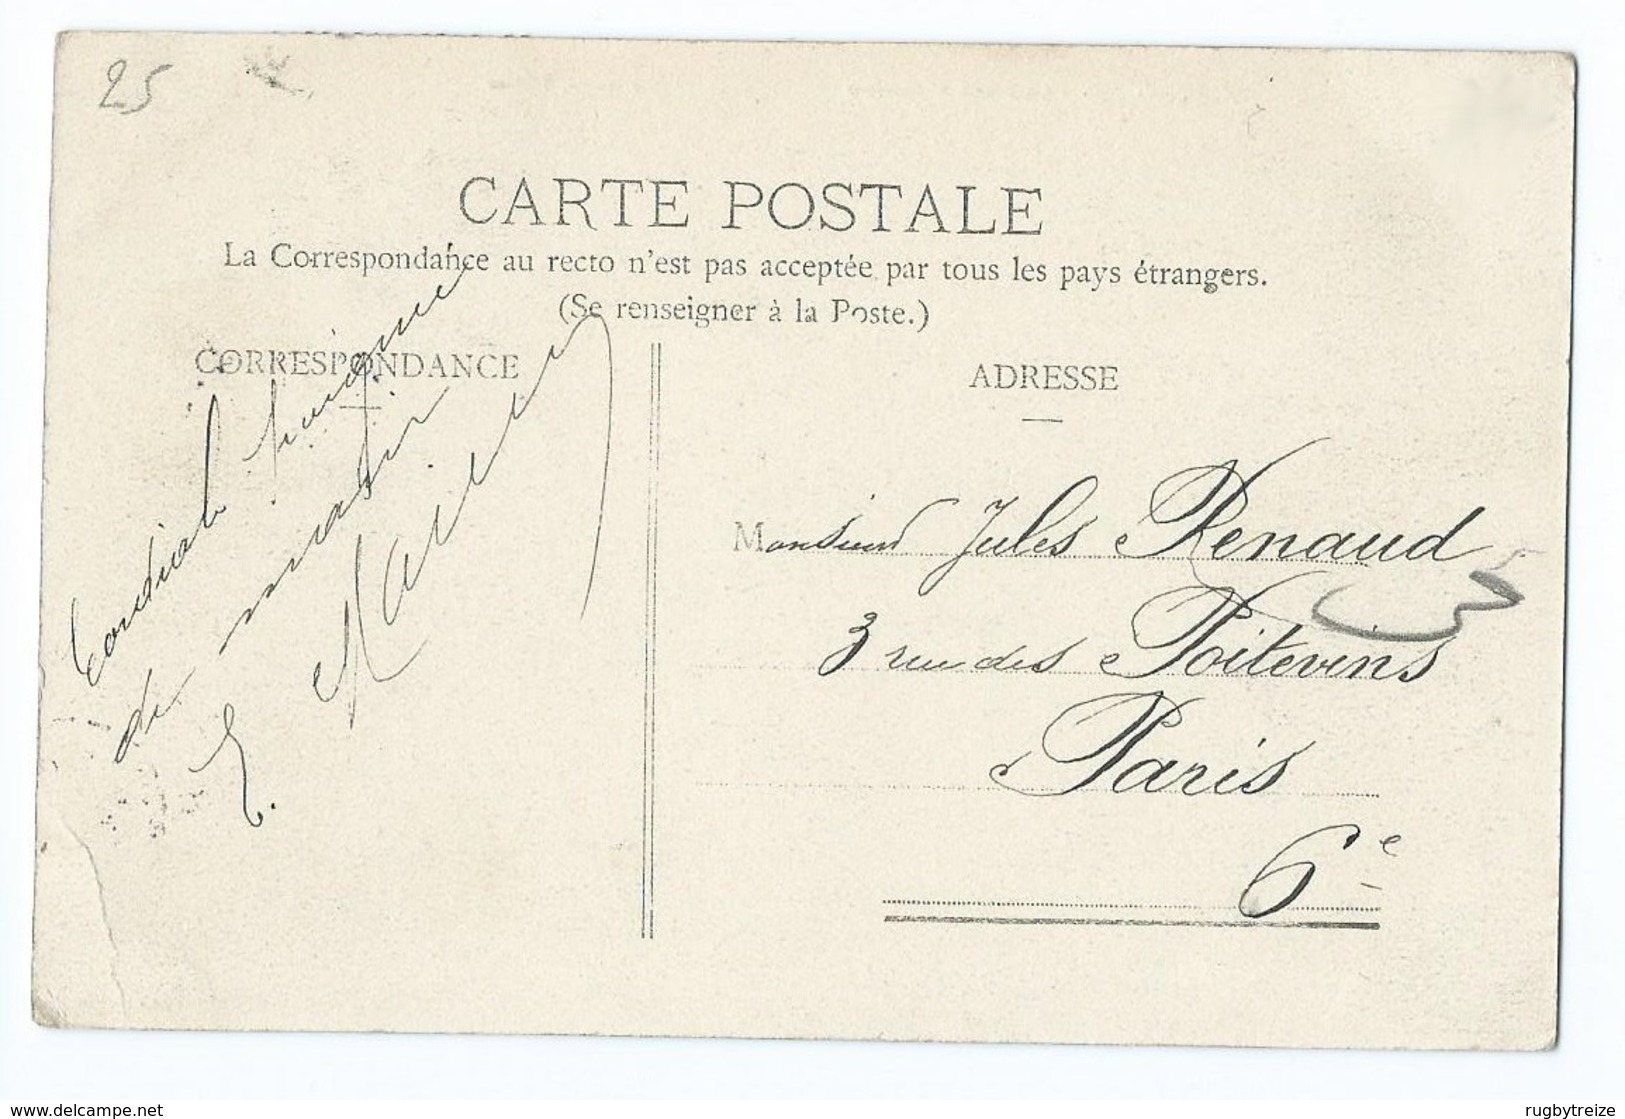 25
CARTE POSTALE
La Correspondance au recto n'est pas acceptée par tous les pays étrangers.
(Se renseigner à la Poste.)
CORRESPONDANCE
Cordiale poignée
de main
E.
ADRESSE
Monsieur Jules Renaud
3 rue des Poitevins
Paris
6e
www.delcampe.net
rugbytreize